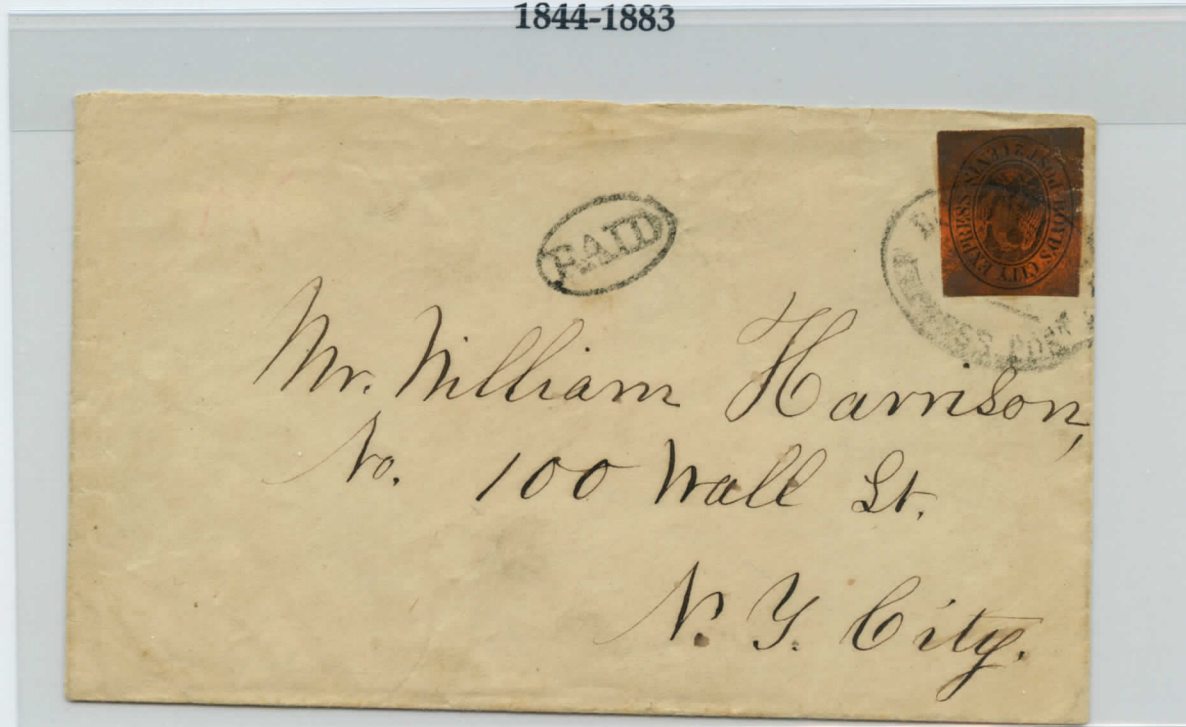 1844-1883
PAID
BOYD'S CITY EXPRESS POST
EXPRESS POST
Mr. William Harrison,
No. 100 Wall St.
N. Y. City.